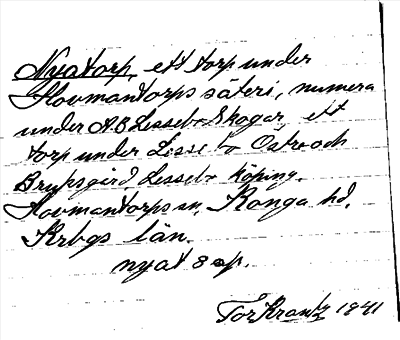 Nyatorp, ett torp under
Hovmantorps säteri, numera
under A.B. Lessebo Skogar, ett
torp under Lessebo Östra och
Bruksgård, Lessebo köping.
Hovmantorps sn, Konga hd,
Krbgs län.
nyat 8 sp.
Tor Krantz 1941